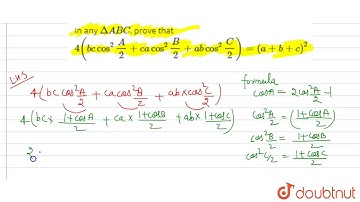 In any ΔABC, prove that
4(bc cos² A/2 + ca cos² B/2 + ab cos² C/2) = (a + b + c)²
LHS
4(bc cos²A/2 + ca cos²B/2 + ab × cos²C/2)
4(bc × (1+cosA)/2 + ca × (1+cosB)/2 + ab × (1+cosC)/2)
2.
formula
cosA = 2cos²A/2 - 1
cos²A/2 = (1+cosA)/2
cos²B/2 = (1+cosB)/2
cos²C/2 = (1+cosC)/2
doubtnut